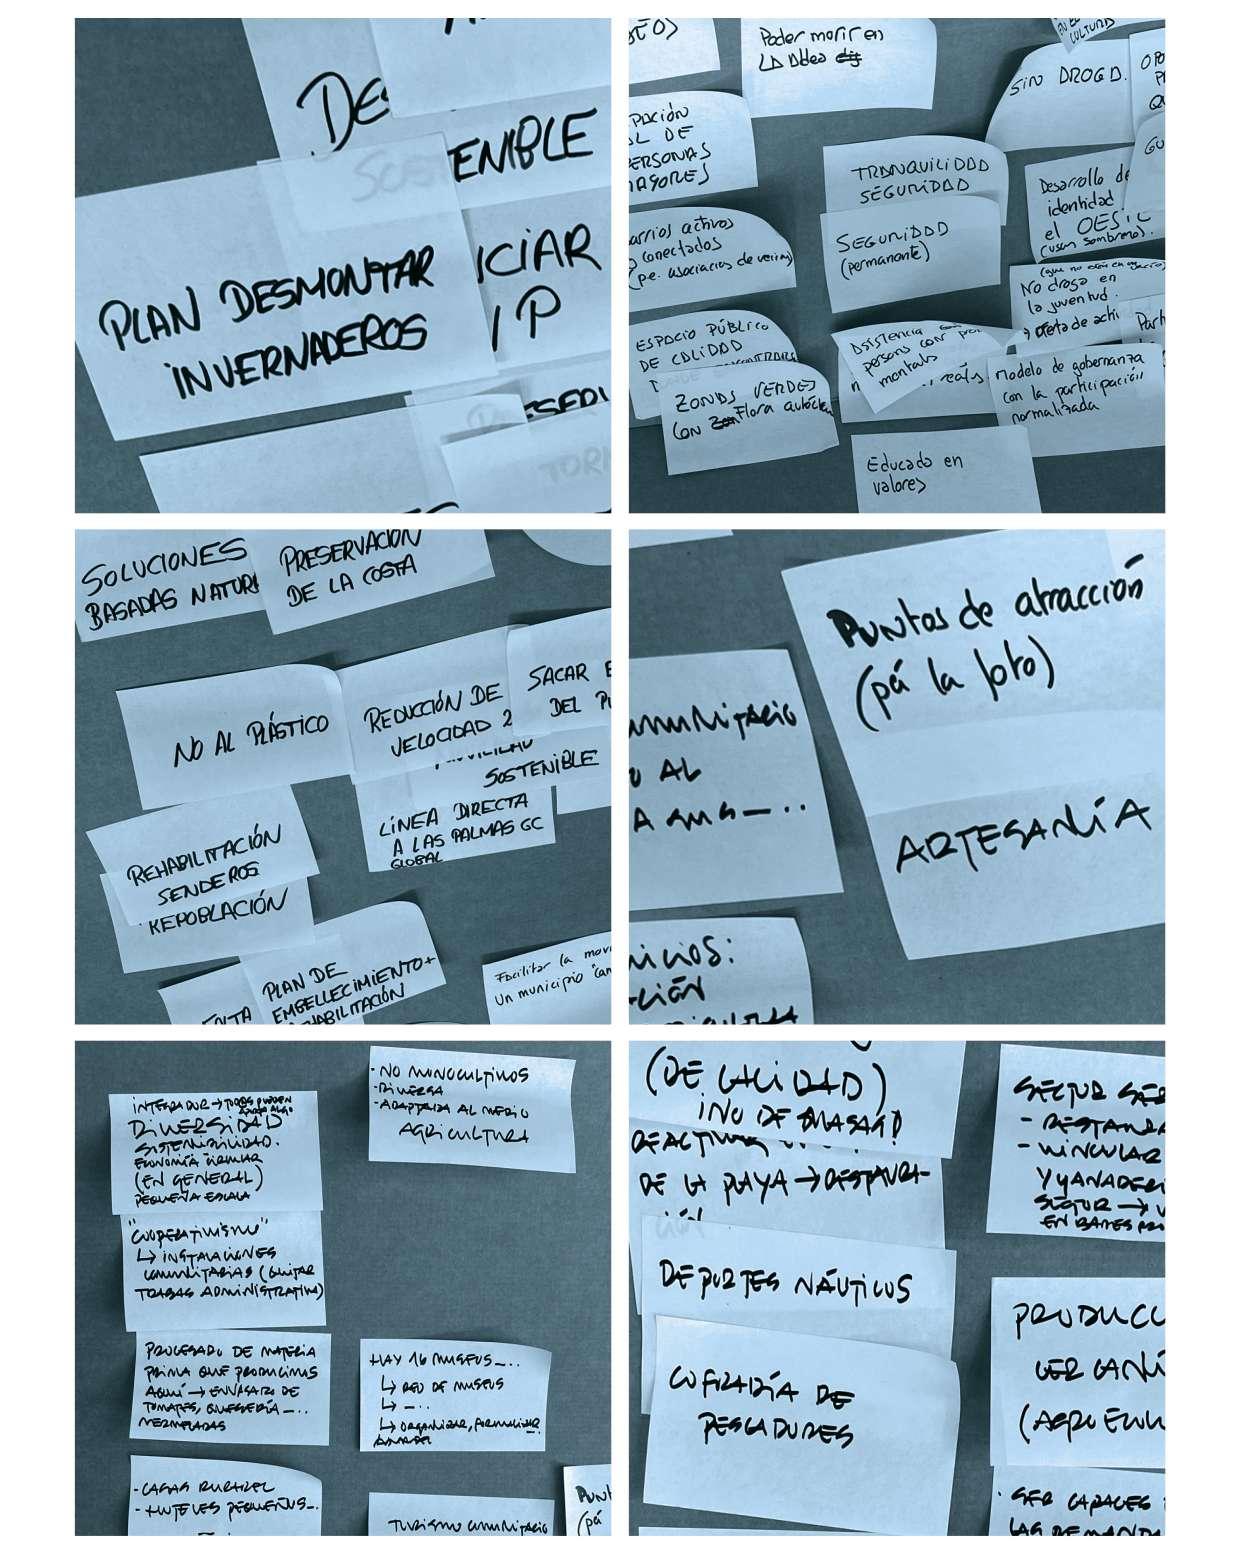 DES
SOSTENIBLE
ICIAR
P
PLAN DESMONTAR
INVERNADEROS
Poder morir en
LA Aldea
SIN DROGA.
PACIÓN
AL DE
PERSONAS
MAYORES
TRANQUILIDAD
SEGURIDAD
Desarrollo de
identidad
el OESTE
(usar sombrero).
arrios activos
conectados
(p.e. asociacios de vecinos)
SEGURIDAD
(permanente)
No droga en
la juventud.
→ oferta de acti
ESPACIO PÚBLICO
DE CALIDAD
ASISTENCIA
persons con
montals
Modelo de gobernanza
con la participación
normalizada
ZONAS VERDES
CON Flora autócton
Educado en
valores
SOLUCIONES
BASADAS NATUR
PRESERVACIÓN
DE LA COSTA
NO AL PLÁSTICO
REDUCCIÓN DE
VELOCIDAD 2
SACAR E
DEL PU
SOSTENIBLE
LÍNEA DIRECTA
A LAS PALMAS GC
GLOBAL
REHABILITACIÓN
SENDEROS
REPOBLACIÓN
PLAN DE
EMBELLECIMIENTO +
REHABILITACIÓN
Facilitar la mov
un municipio "can
Puntos de atracción
(pá la foto)
ARTESANÍA
omunitario
AL
icios:
ción
INTEGRADOR → TODOS PUEDEN
DIVERSIDAD
SOSTENIBILIDAD.
ECONOMÍA CIRCULAR
(EN GENERAL)
PEQUEÑA ESCALA
- NO MONOCULTIVOS
- DIVERSA
- ADAPTADA AL MEDIO
AGRICULTURA
"COOPERATIVISMO"
↳ INSTALACIONES
COMUNITARIAS (QUITAR
TRABAS ADMINISTRATIVAS)
PROCESADO DE MATERIA
PRIMA QUE PRODUCIMOS
AQUÍ → ENVASADO DE
TOMATES, QUESERÍA ...
MERMELADAS
HAY 16 MUSEOS ...
↳ RED DE MUSEOS
↳ ...
↳ ORGANIZAR, FORMALIZAR
- CASAS RURALES
- HOTELES PEQUEÑOS ...
TURISMO COMUNITARIO
Punt
(pá
(DE CALIDAD)
¡NO DE MASAS!
REACTIVAR
DE LA PLAYA → RESTAURA-
CIÓN
DEPORTES NÁUTICOS
COFRADÍA DE
PESCADORES
SECTOR
- VINCULAR
Y GANADERÍ
SECTOR →
PRODUCC
CERCANÍ
(AGROECOL
· SER CAPACES
LAS DEMANDA